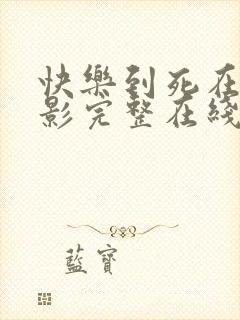 快樂到死在
影完整在綫
藍寶